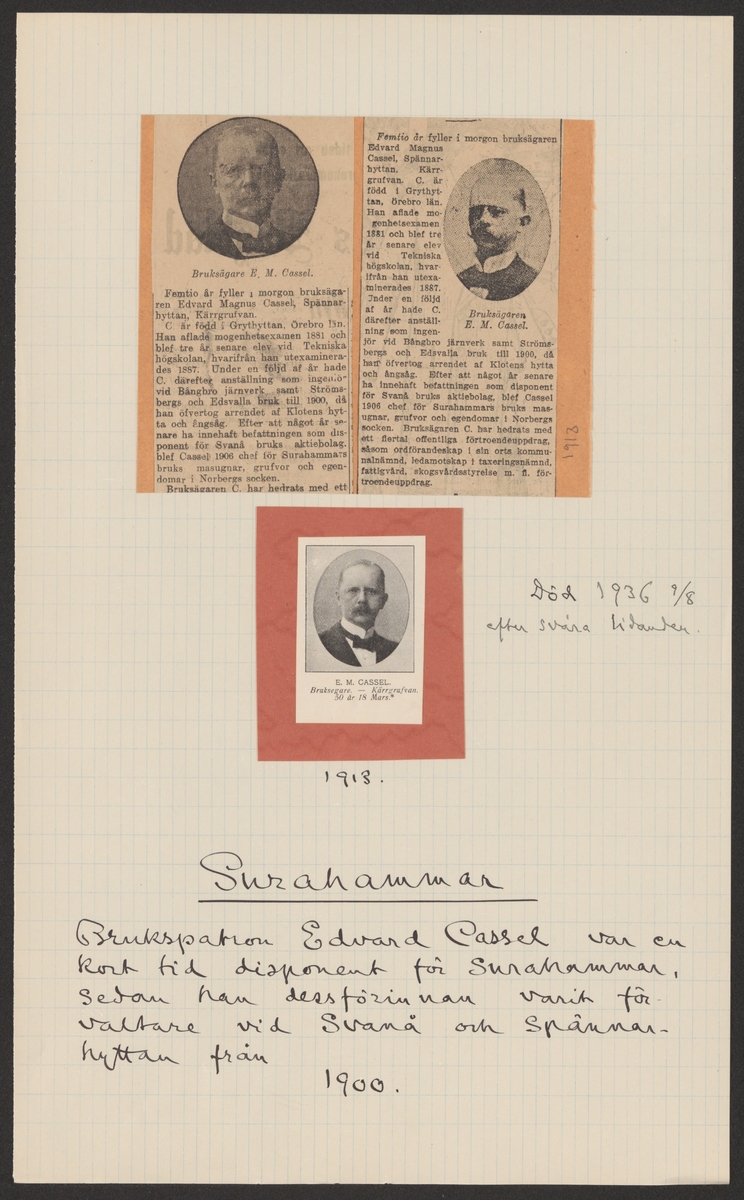 Bruksägare E. M. Cassel.
Femtio år fyller i morgon bruksäga-
ren Edvard Magnus Cassel, Spännar-
hyttan, Kärrgrufvan.
C. är född i Grythyttan, Örebro län.
Han aflade mogenhetsexamen 1881 och
blef tre år senare elev vid Tekniska
högskolan, hvarifrån han utexaminera-
des 1887. Under en följd af år hade
C. därefter anställning som ingeniör
vid Bångbro järnverk samt Ströms-
bergs och Edsvalla bruk till 1900, då
han öfvertog arrendet af Klotens hyt-
ta och ångsåg. Efter att något år se-
nare ha innehaft befattningen som dis-
ponent för Svanå bruks aktiebolag,
blef Cassel 1906 chef för Surahammars
bruks masugnar, grufvor och egen-
domar i Norbergs socken.
Bruksägaren C. har hedrats med ett
Femtio år fyller i morgon bruksägaren
Edvard Magnus
Cassel, Spännar-
hyttan, Kärr-
grufvan. C. är
född i Grythyt-
tan, Örebro län.
Han aflade mo-
genhetsexamen
1881 och blef tre
år senare elev
vid Tekniska
högskolan, hvar-
ifrån han utexa-
minerades 1887.
Under en följd
af år hade C.
därefter anställ-
ning som ingen-
jör vid Bångbro järnverk samt Ströms-
bergs och Edsvalla bruk till 1900, då
han öfvertog arrendet af Klotens hytta
och ångsåg. Efter att något år senare
ha innehaft befattningen som disponent
för Svanå bruks aktiebolag, blef Cassel
1906 chef för Surahammars bruks mas-
ugnar, grufvor och egendomar i Norbergs
socken. Bruksägaren C. har hedrats med
ett flertal offentliga förtroendeuppdrag,
såsom ordförandeskap i sin orts kommu-
nalnämnd, ledamotskap i taxeringsnämnd,
fattigvård, skogsvårdsstyrelse m. fl. för-
troendeuppdrag.
Bruksägaren
E. M. Cassel.
1913
E. M. CASSEL.
Bruksegare. — Kärrgrufvan.
50 år 18 Mars.*
Död 1936 9/8
efter svåra lidanden.
1913.
Surahammar
Brukspatron Edvard Cassel var en
kort tid disponent för Surahammar,
sedan han dessförinnan varit för-
valtare vid Svanå och Spännar-
hyttan från
1900.